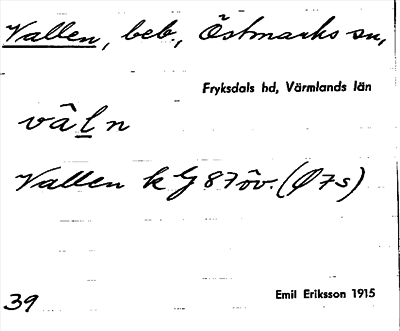 Vallen, beb., Östmarks sn,
Fryksdals hd, Värmlands län
vâl̲n
Vallen k G 87öv. (Ø7s)
39
Emil Eriksson 1915